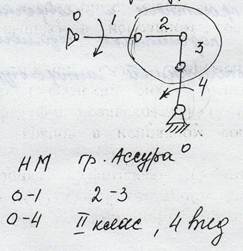 0
1
2
3
4
0
НМ гр. Ассура
0-1 2-3
0-4 II класс, 4 вид